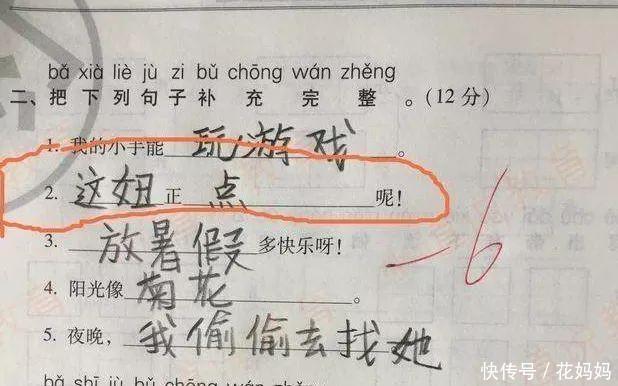 bǎ xià liè jù zi bǔ chōng wán zhěng
二、把下列句子补充完整。(12分)
1. 我的小手能玩游戏。
2. 这妞正点呢!
3. 放暑假多快乐呀!
-6
4. 阳光像菊花。
5. 夜晚,我偷偷去找她
快传号/花妈妈